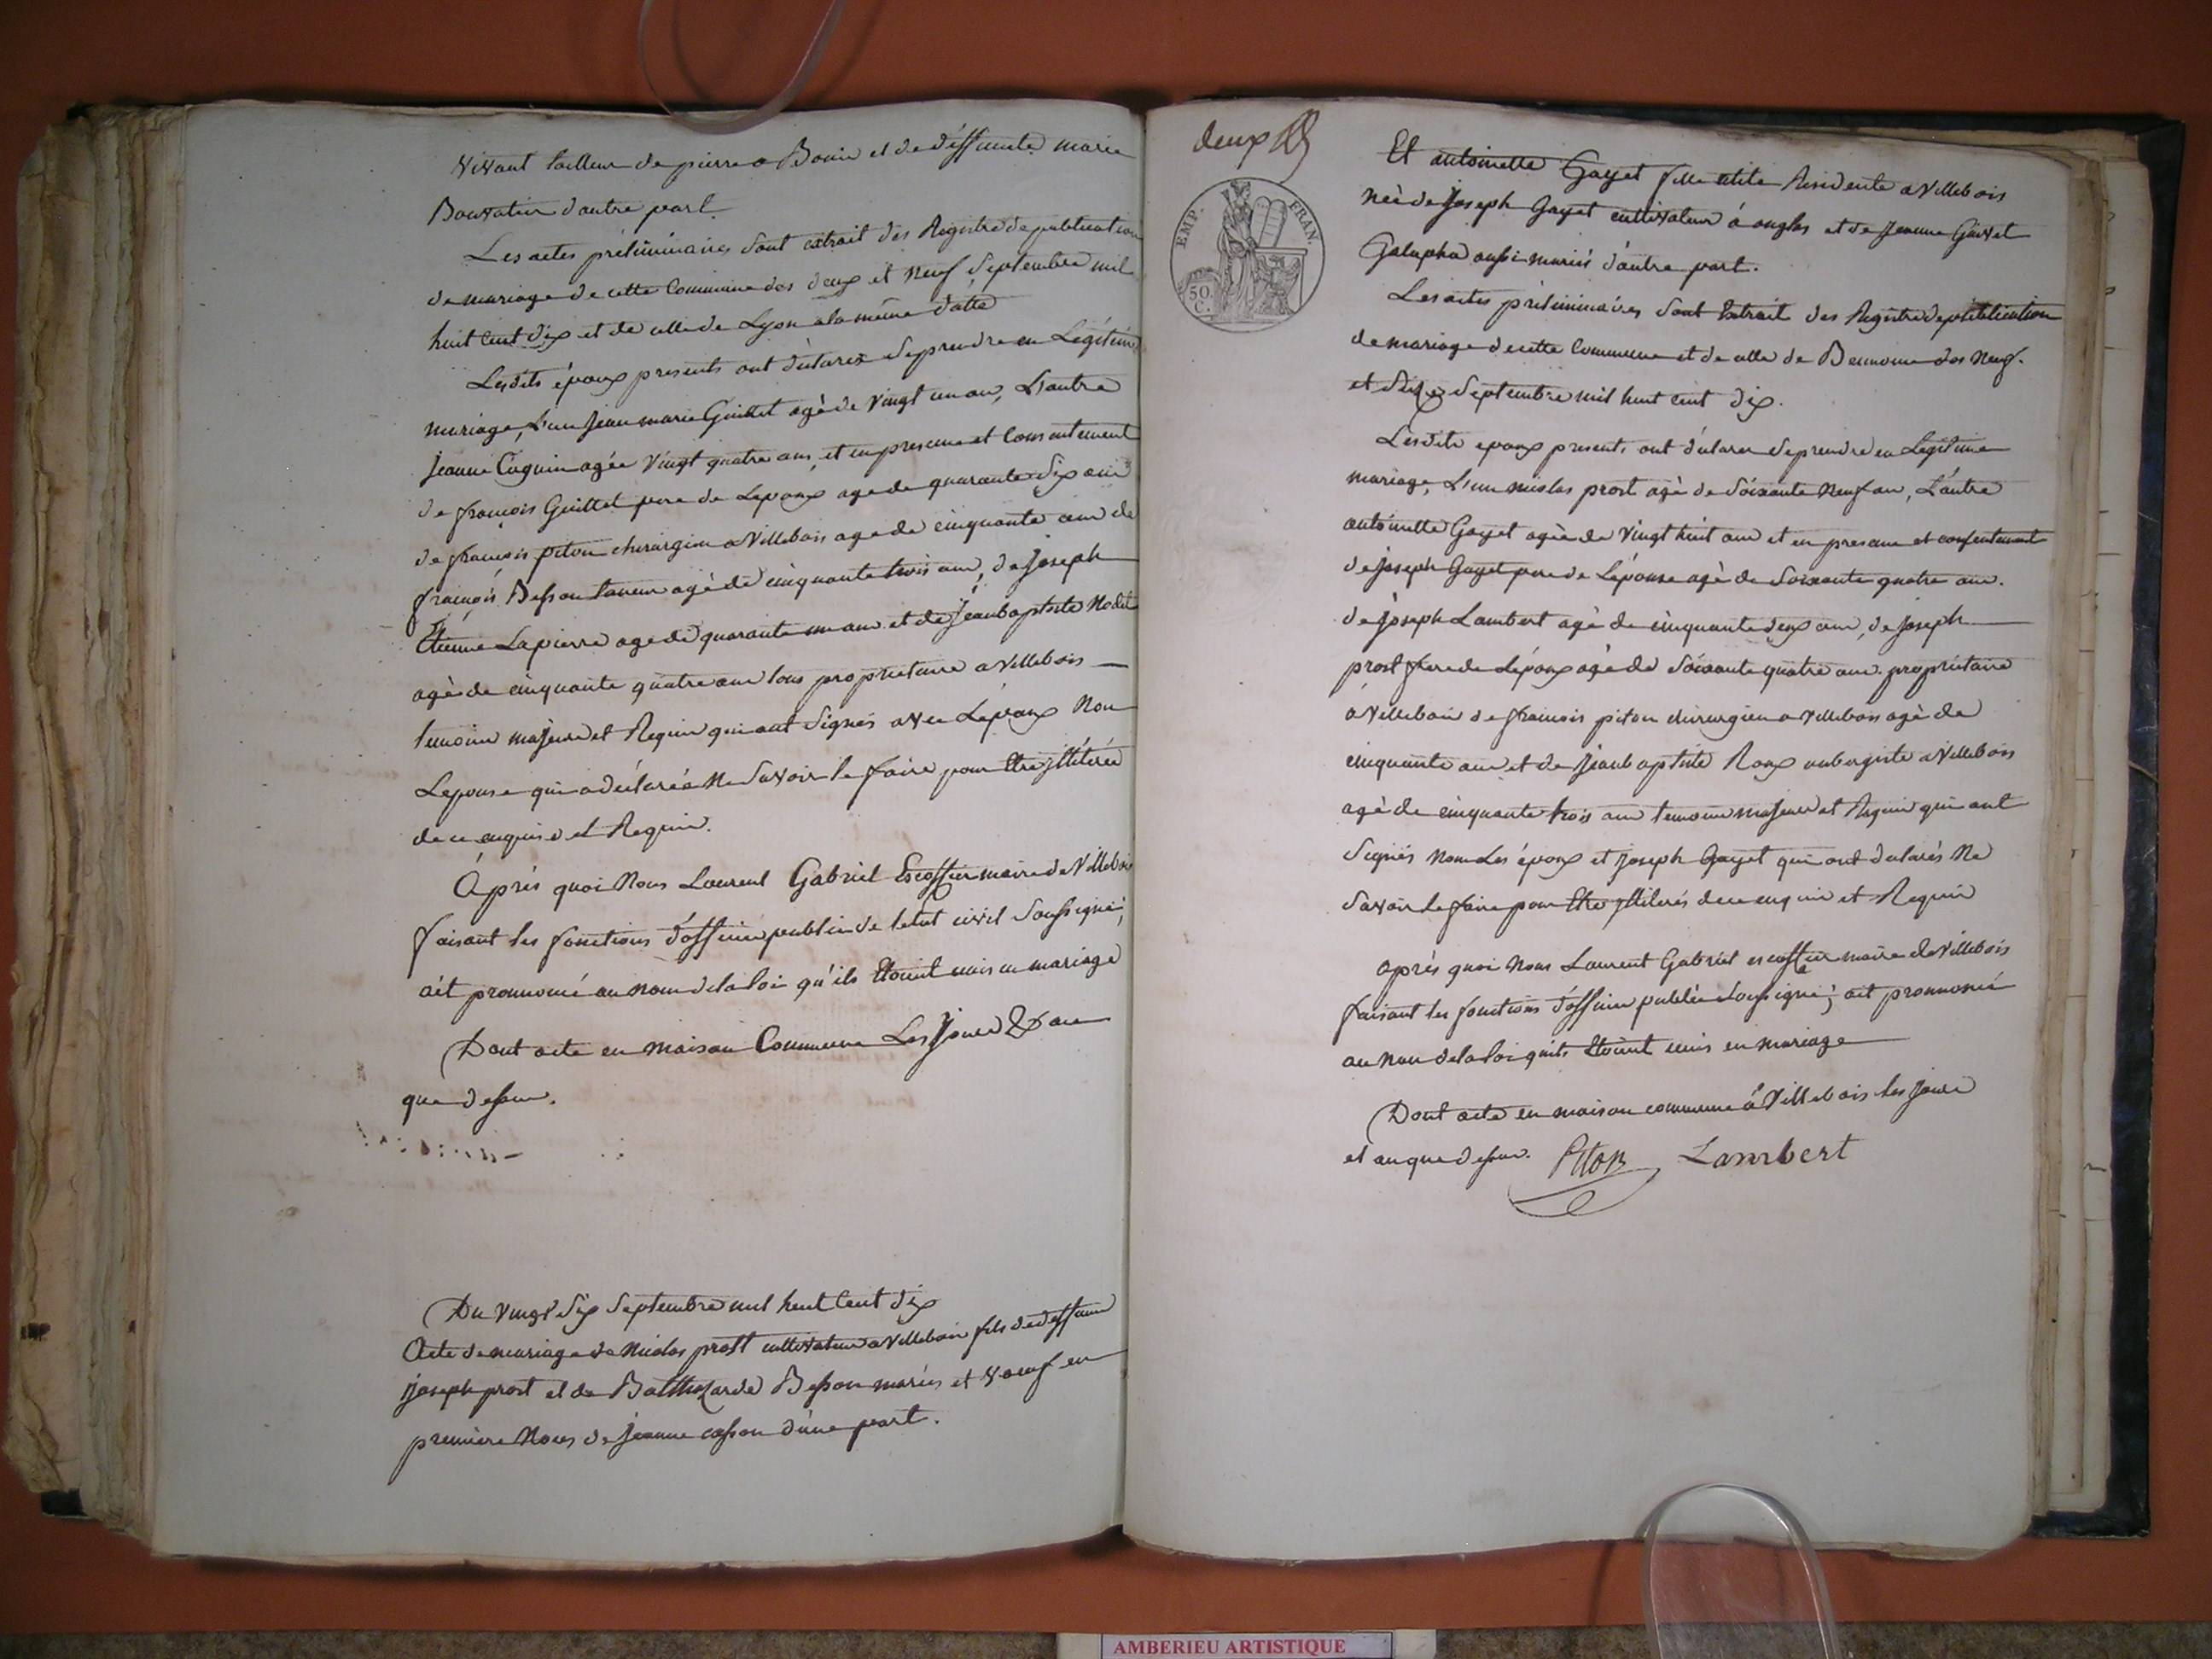 vivant tailleur de pierre a Bouis et de déffunte marie
Bouvatier dautre part.
Les actes préliminaires sont extrait des Registre de publication
de mariage de cette Commune des deux et Neuf Septembre mil
huit Cent dix et de celle de Lyon a la même datte
Lesdits époux presents ont déclarer de prendre en Légitime
mariage, L'un jean marie Guillet agé de vingt un an, L'autre
jeanne Cuguin agée vingt quatre ans, et en presence et Consentement
de françois Guillet pere de Lepoux age de quarante six ans
de françois piton chirurgien a Villebois age de cinquante ans de
françois Besson tanneur agé de cinquante trois ans, de joseph
Étienne Lapierre age de quarante un ans et de jean baptiste Nodet
agé de cinquante quatre ans tous proprietaire a Villebois
temoins majeurs et Requis qui ont signés avec Lepoux Non
Lepouse qui a déclaréé Ne Savoir le faire pour Etre jlliterée
de ce enquise et Requise.
Aprés quoi Nous Laurent Gabriel Escoffier maire de Villebois
faisant les fonctions d'officier public de letat civil Soussigné;
ait prononcé au nom de la loi qu'ils Etoient unis en mariage
Dont acte en maison Commune Les jour & an
que dessus.
Du vingt six Septembre mil huit Cent dix
Acte de mariage de Nicolas prost cultivateur a Villebois fils de deffunt
joseph prost et de Balthazarde Besson mariés et voeuf en
premiere Noces de jeanne casson d'une part.
deux
EMP. FRAN.
50 C.
Et antoinette Gayet fille Residente a Villebois
née de Joseph Gayet cultivateur á et de jeanne
aussi mariés d'autre part.
Les actes préliminaires sont Extrait des Registre de publication
de mariage de cette Commune et de celle de Benonce des Neuf.
et Seize Septembre mil huit cent dix.
Lesdits epoux presents ont déclarer de prendre en Légitime
mariage, L'un nicolas prost agé de Soixante Neuf an, L'autre
antoinette Gayet agée de vingt huit ans et en presence et consentement
de joseph Gayet pere de Lépouse agé de Soixante quatre ans.
de joseph Lambert agé de cinquante deux ans, de joseph
prost frere de Lépoux agé de Soixante quatre ans. proprietaire
a Villebois de françois piton chirurgien a Villebois agé de
cinquante ans et de jean baptiste Roux aubergiste a Villebois
agé de cinquante trois ans temoins majeurs et Requis qui ont
Signés Non Les époux et joseph Gayet qui ont declarés Ne
Savoir le faire pour Etre jlliterés de ce enquis et Requis
aprés quoi Nous Laurent Gabriel escoffier maire de Villebois
faisant les fonctions d'officier public Soussigné; ait prononcé
au nom de la loi qu'ils Etoient unis en mariage
Dont acte en maison commune á Villebois les jour
et an que dessus. Piton Lambert
AMBERIEU ARTISTIQUE